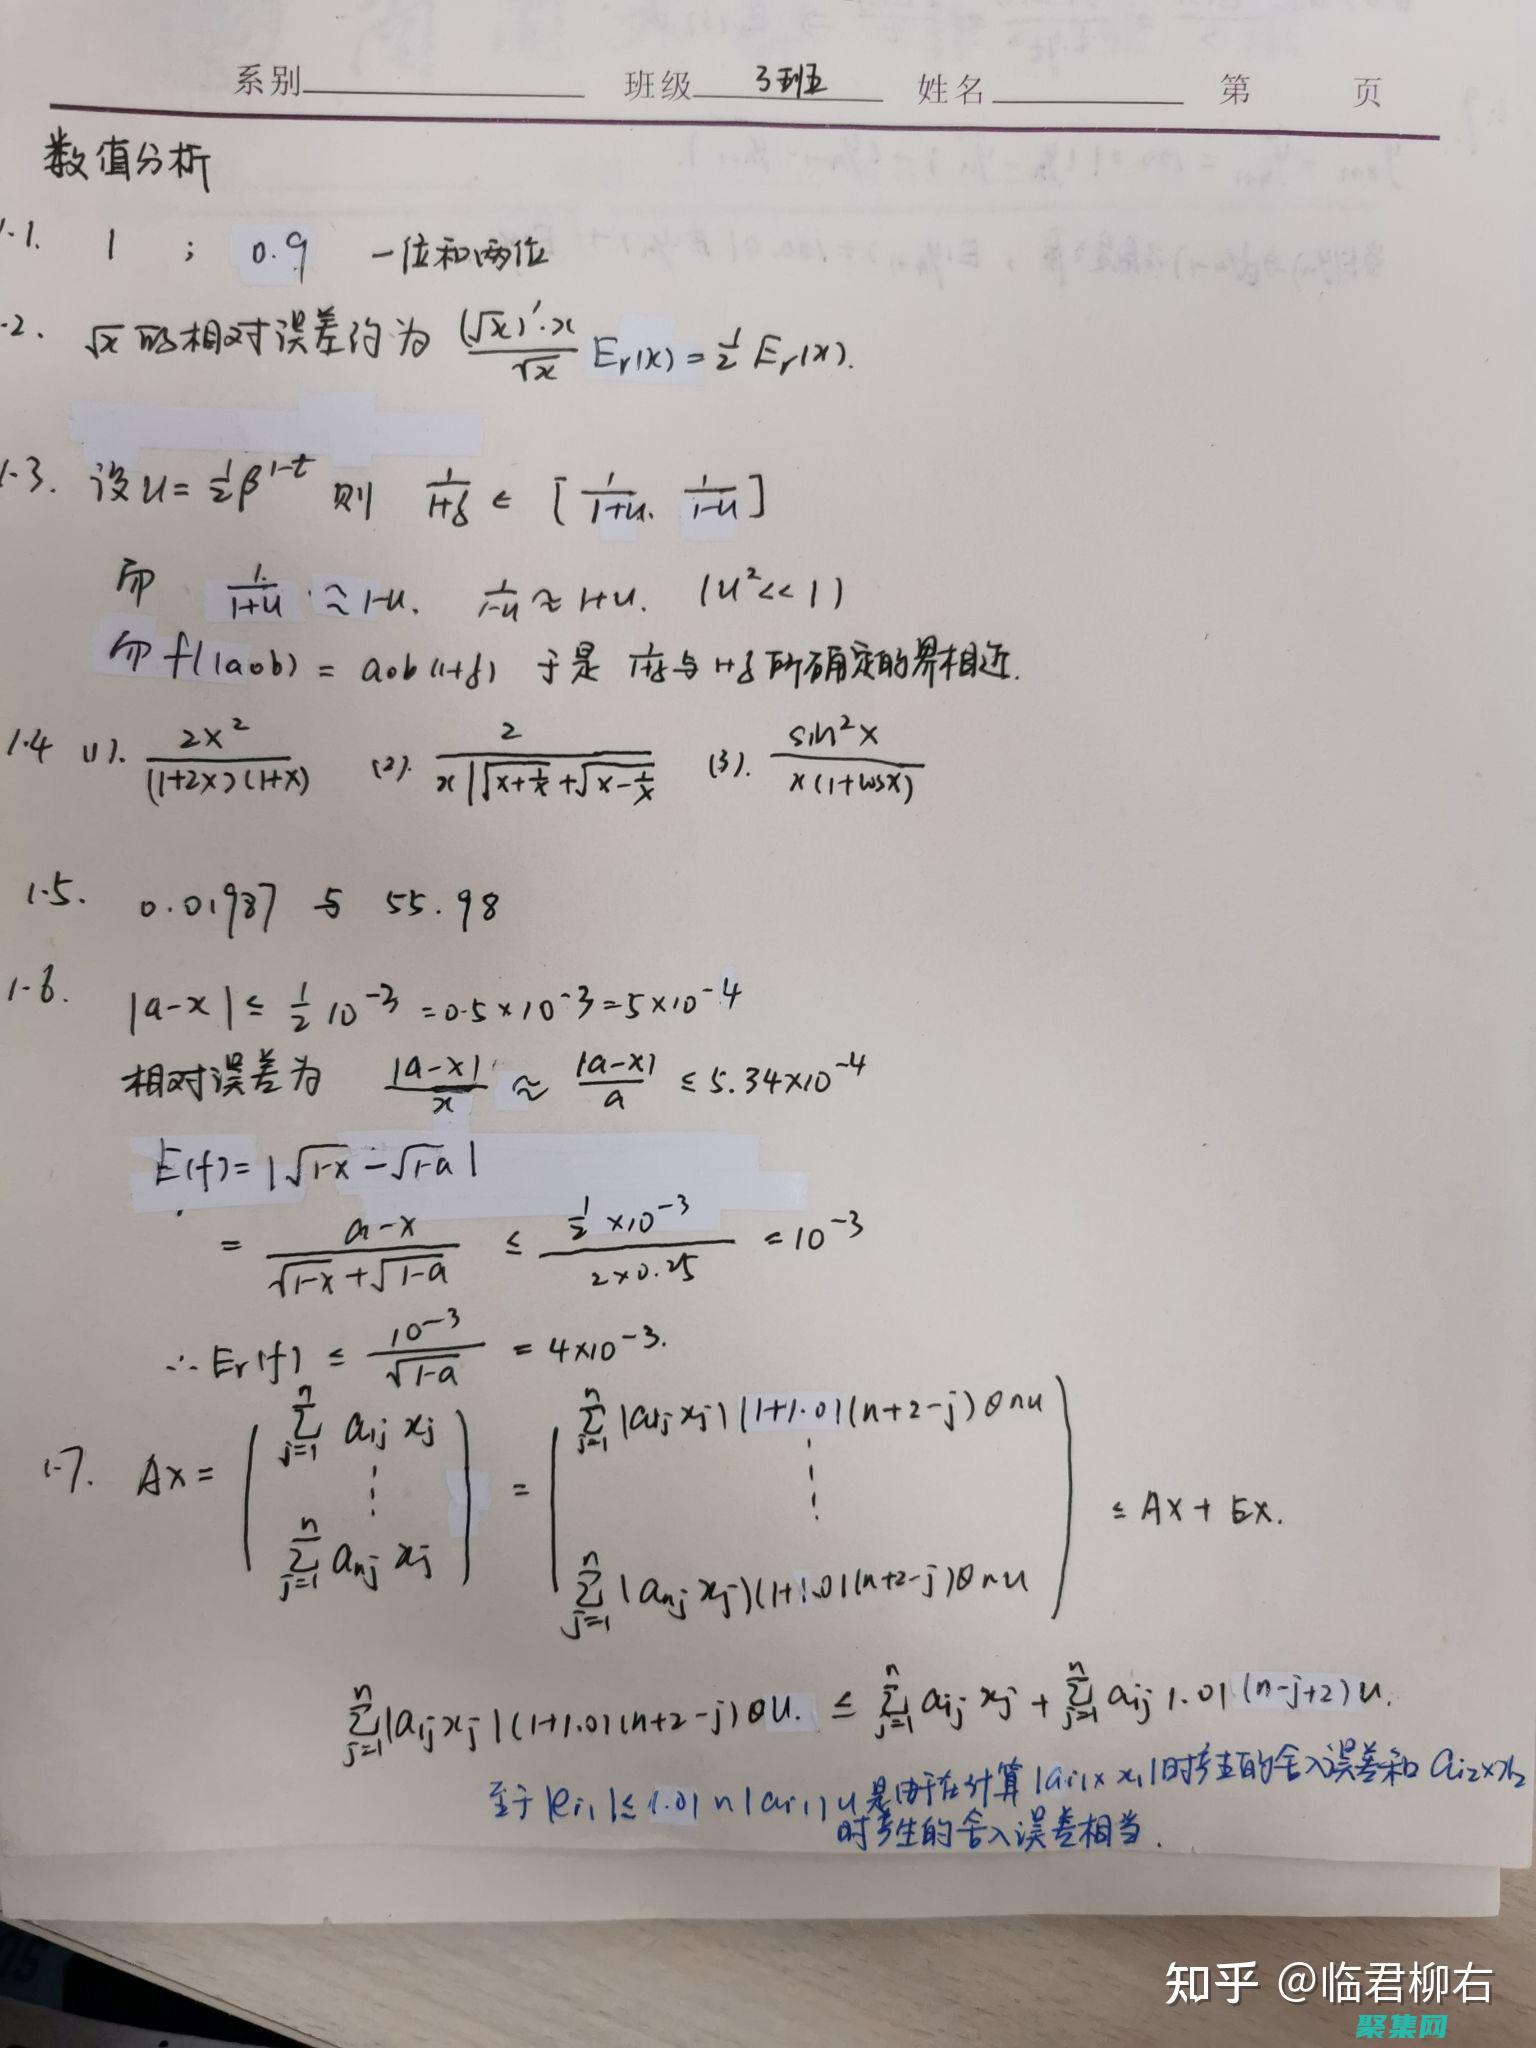 系别 班级 3班 姓名 第 页
数值分析
1.1. 1 ; 0.9 一位和两位
1.2. √x 的相对误差约为 (√x)'·x / √x Er(x) = 1/2 Er(x).
1.3. 设 u = 1/2 β^(1-t) 则 1/(1+δ) ∈ [1/(1+u), 1/(1-u)]
而 1/(1+u) ≈ 1-u. 1/(1-u) ≈ 1+u. (u² << 1)
而 f(aob) = aob(1+δ) 于是 1/(1+δ) 与 1+δ 所确定的界相近.
1.4 (1). 2x² / (1+2x)(1+x) (2). 2 / x(√(x+1/x) + √(x-1/x) (3). sin²x / x(1+cosx)
1.5. 0.01987 与 55.98
1.6. |a-x| ≤ 1/2 10^-3 = 0.5×10^-3 = 5×10^-4
相对误差为 |a-x| / x ≈ |a-x| / a ≤ 5.34×10^-4
E(f) = |√(1-x) - √(1-a)|
= a-x / (√(1-x) + √(1-a)) ≤ 1/2 ×10^-3 / 2×0.25 = 10^-3
∴ Er(f) ≤ 10^-3 / √(1-a) = 4×10^-3.
1.7. Ax = ( Σ_{j=1}^n a1j xj ⋮ Σ_{j=1}^n anj xj ) = ( Σ_{j=1}^n |a1j xj| (1+1.01(n+2-j)θnu ⋮ Σ_{j=1}^n |anj xj)(1+1.01(n+2-j)θnu ) ≤ Ax + Ex.
Σ_{j=1}^n |aij xj|(1+1.01(n+2-j)θu. ≤ Σ_{j=1}^n aij xj + Σ_{j=1}^n aij 1.01(n-j+2)u.
至于 |ei1| ≤ 1.01 n|ai1|u 是由于在计算 |ai1×x1| 时产生的舍入误差和 ai2×x2
时产生的舍入误差相当.
知乎 @临君柳右
聚集网